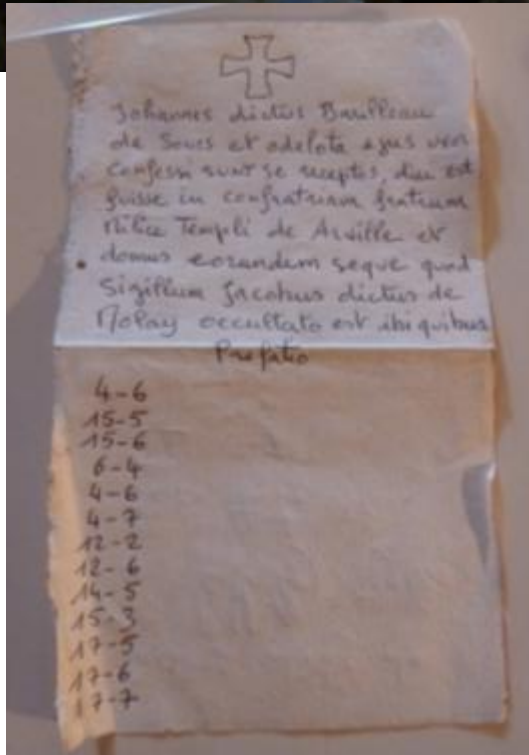 Johannes dictus Barilleau
de Sours et odelota ejus uxor
Confessi sunt se receptos, diu est
fuisse in confratriam fratrum
Milice Templi de Arville et
domus eorumdem seque quod
Sigillum Jacobus dictus de
Molay occultato est ibi quibus
Prefatio
4-6
15-5
15-6
6-4
4-6
4-7
12-2
12-6
14-5
15-3
17-5
17-6
17-7